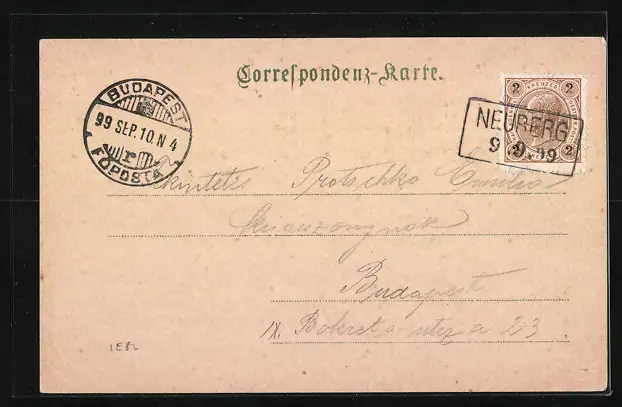 Correspondenz-Karte.
BUDAPEST
99 SEP. 10. N 4
FŐPOSTA
2 KREUZER 2
NEUBERG
9 9 99
2 2
Protschko Emilia
Budapest
IX. Bokréta utca 23.